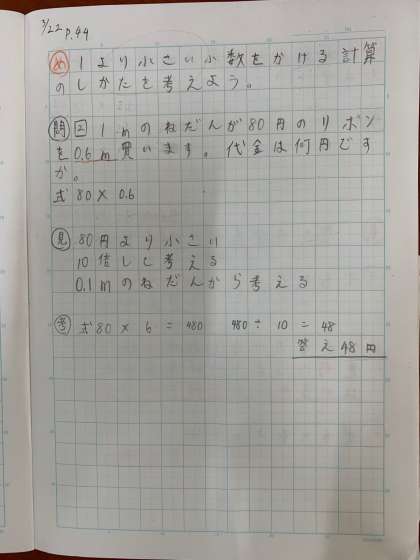 3/22 P.44
め 1より小さい小数をかける計算
のしかたを考えよう。
問 2 1mのねだんが80円のリボン
を0.6m買います。代金は何円です
か。
式 80×0.6
見 80円より小さい
10倍して考える
0.1mのねだんから考える
考 式80×6=480 480÷10=48
答え48円